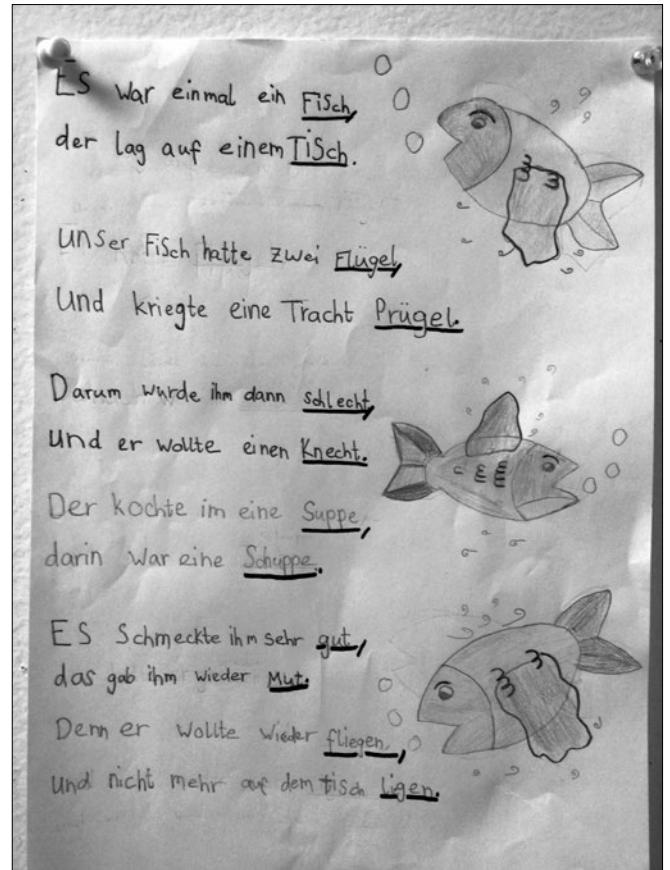 Es war einmal ein Fisch,
der lag auf einem Tisch.
Unser Fisch hatte zwei Flügel,
Und kriegte eine Tracht Prügel.
Darum wurde ihm dann schlecht,
und er wollte einen Knecht.
Der kochte im eine Suppe,
darin war eine Schuppe.
ES Schmeckte ihm sehr gut,
das gab ihm wieder Mut.
Denn er wollte wieder fliegen,
und nicht mehr auf dem tisch ligen.